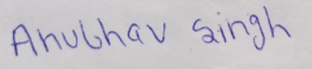 Anubhav Singh